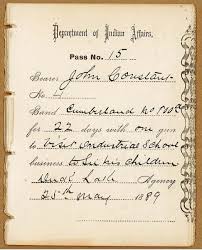 Department of Indian Affairs.
Pass No. 15
Bearer John Constant
No. 4
Band Cumberland No 100A
for 22 days with one gun
to visit Industrial School
business to See his children
Duck Lake Agency
25th May 1889